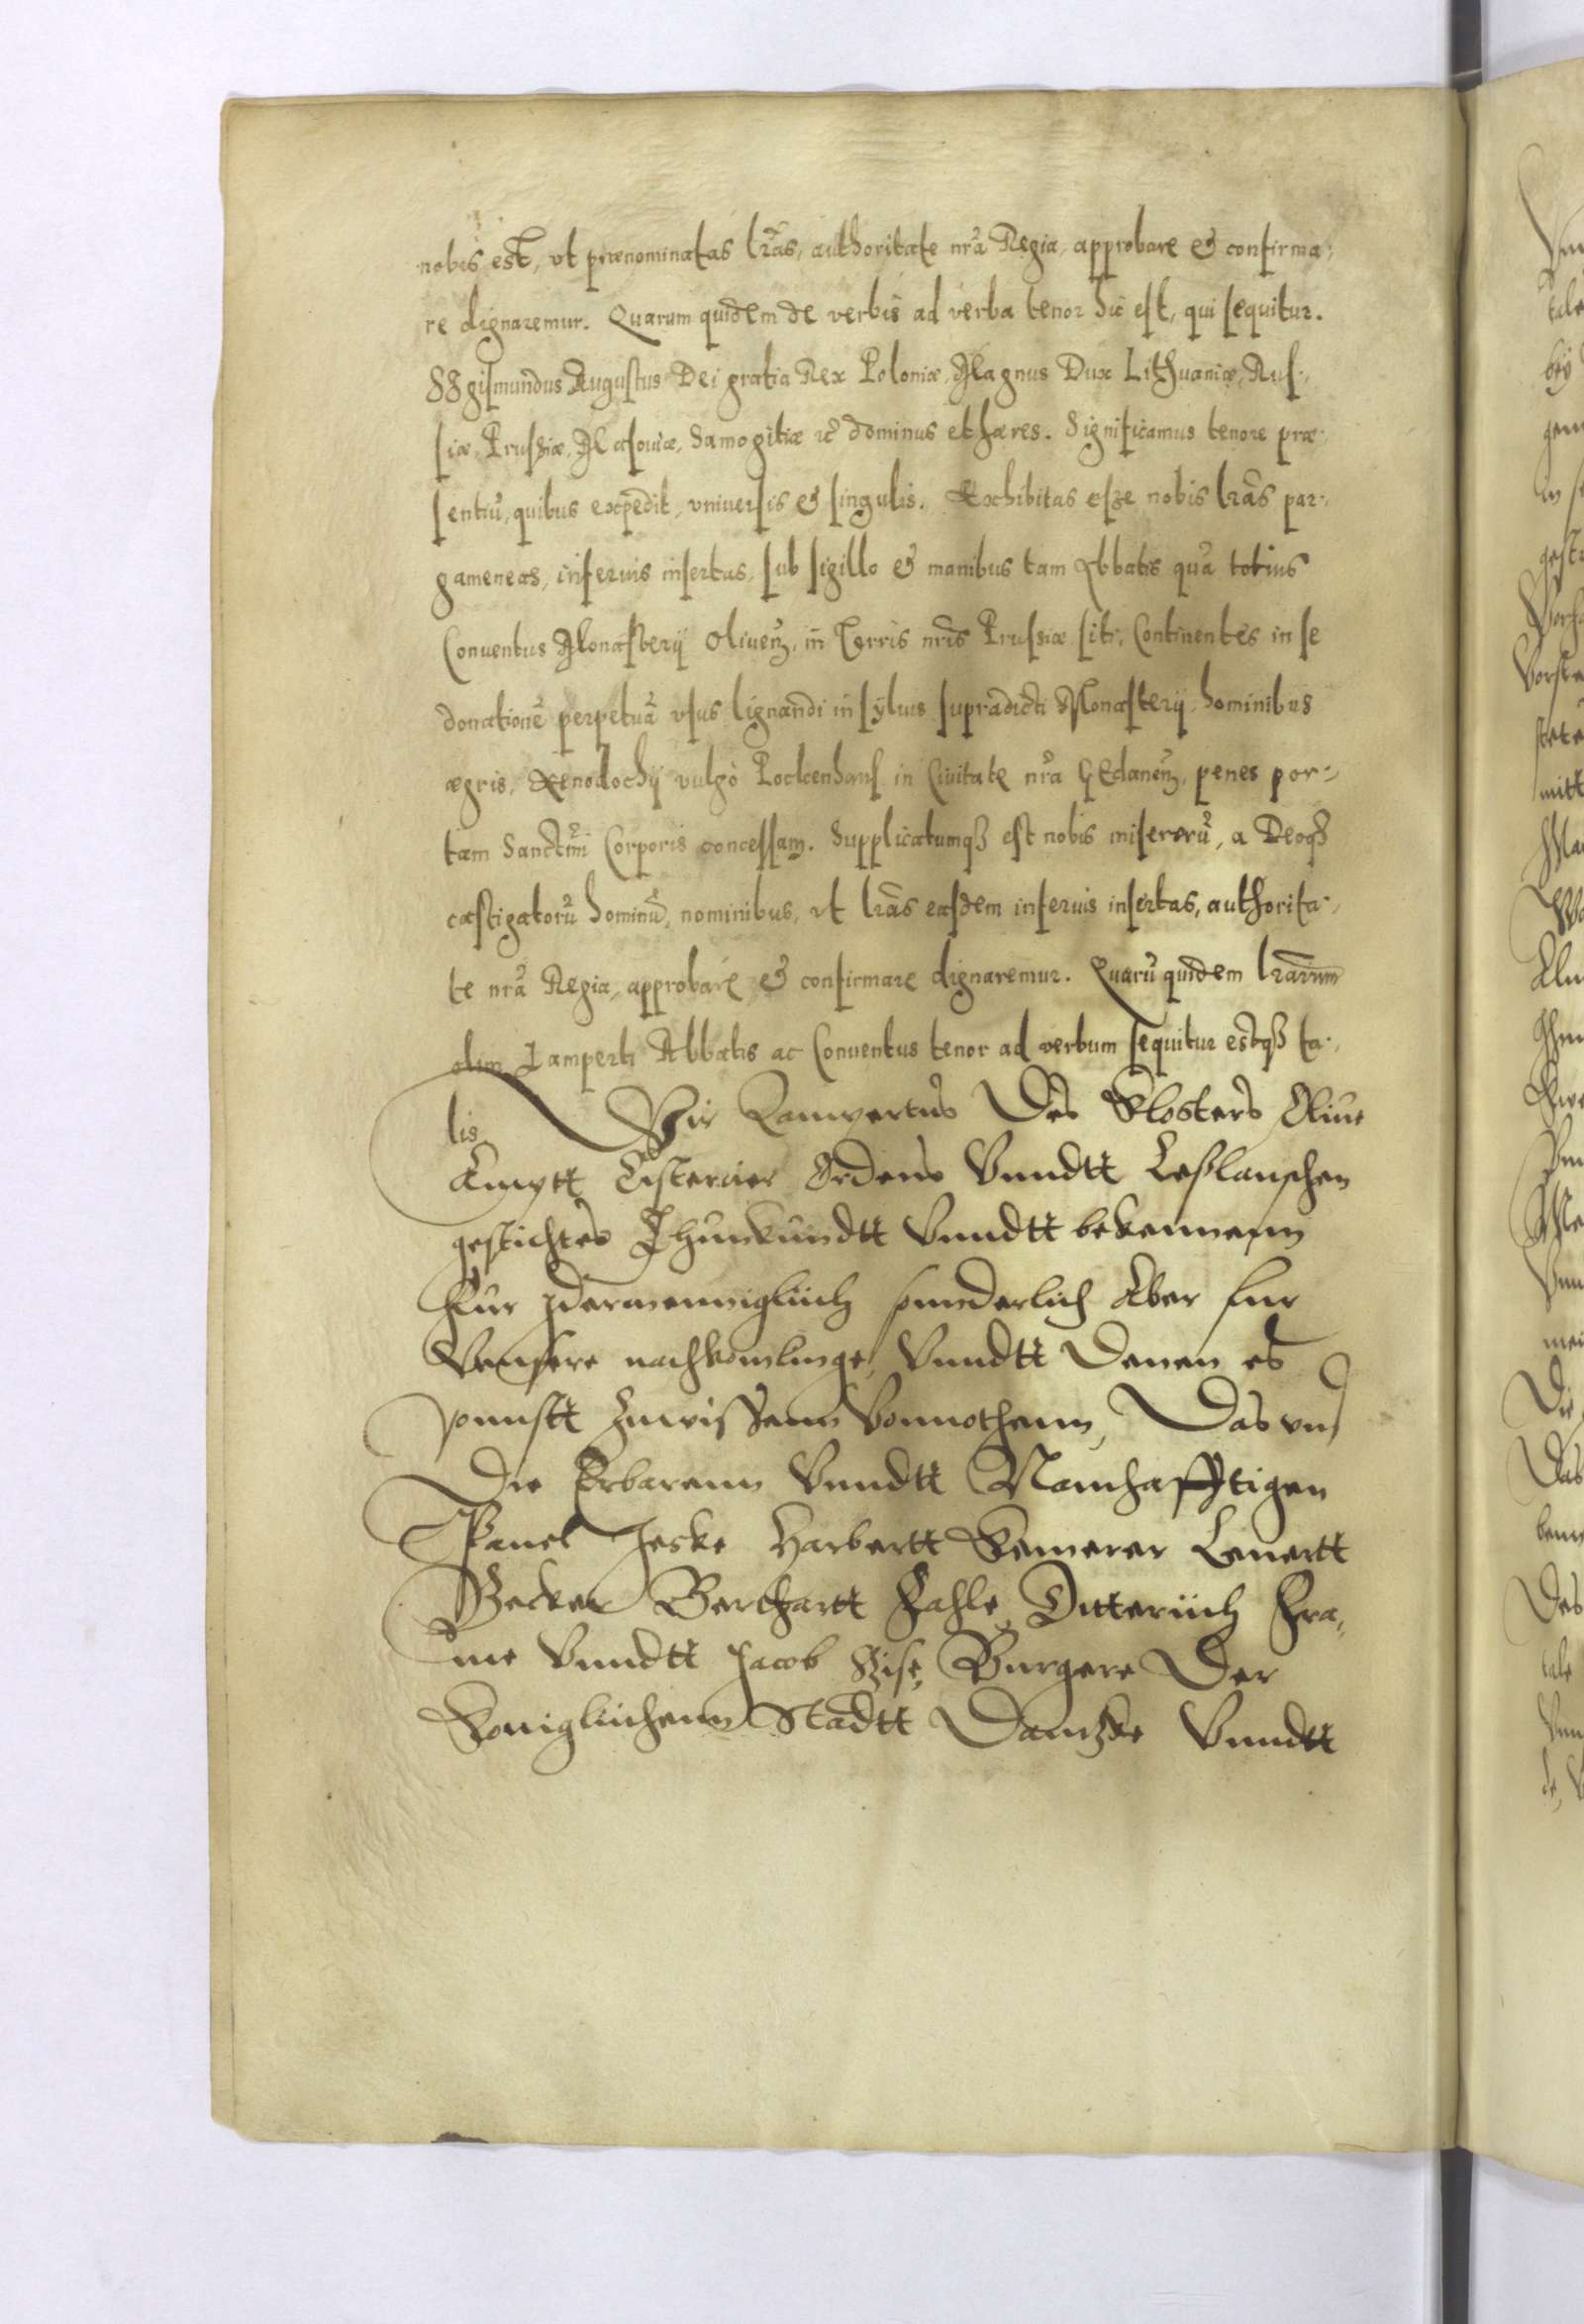 nobis est, vt prænominatas lr̃as, authoritate nr̃a Regia, approbare & confirma-
re dignaremur. Quarum quidem de verbis ad verba tenor hic est, qui sequitur.
Sigismundus Augustus Dei gratia Rex Poloniæ, Magnus Dux Lithuaniæ, Rus-
siæ, Prussiæ, Masouiæ, Samogitiæ ꝛc̃ dominus et hæres. Significamus tenore præ-
sentiũ, quibus expedit, vniuersis & singulis. Exhibitas esse nobis lr̃as par-
gameneas, inferius insertas, sub sigillo & manibus tam Abbatis quã totius
Conuentus Monasterij Oliueñ, in Terris nr̃is Prussiæ siti, Continentes in se
donationẽ perpetuã vsus lignandi in syluis supradicti Monasterij, hominibus
ægris, Xenodochij vulgò Pockenhaus in Ciuitate nr̃a Gedaneñ, penes por-
tam Sanctm̃i Corporis concessam. Supplicatumqȝ est nobis miserorũ, a Deoqȝ
castigatorũ hominũ, nominibus, vt lr̃as easdem inferius insertas, authorita-
te nr̃a Regia, approbare & confirmare dignaremur. Quarũ quidem lr̃arum
olim Lamperti Abbatis ac Conuentus tenor ad verbum sequitur estqȝ ta-
lis
Wir Lampertus Des Klosters Oliue
Cisterier Ordens Vnndtt Leßlauschen
gestichtes Thunkundtt Vnndtt bekennenn
Fur Jdermenniglich sonnderlich Aber fur
Vnnsere nachkomlinge, Vnndtt Denen es
sonnstt Zuwissenn Vonnothenn, Das vns
Die Erbarenn Vnndtt Namhafftigen
Pauel Jeske Harbertt Kemerer Leuertt
Becker Gerthartt Fahle, Ditterich Fra,
me Vnndtt Jacob Burgere Der
Koniglichenn Stadtt Dantzke Vnndtt